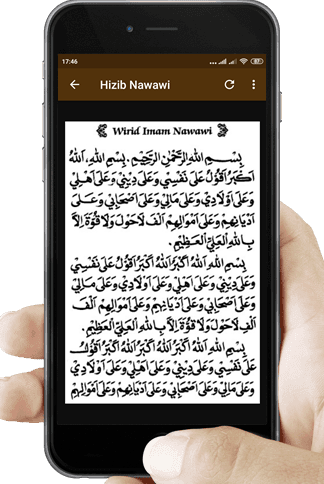 17:46
87
Hizib Nawawi
Wirid Imam Nawawi
بِسْمِ اللهِ الرَّحْمٰنِ الرَّحِيْمِ. بِسْمِ اللهِ، اَللهُ
اَكْبَرُ اَقُوْلُ عَلَى نَفْسِيْ وَعَلَى دِيْنِيْ وَعَلَى اَهْلِيْ
وَعَلَى اَوْلَادِيْ وَعَلَى مَالِيْ وَعَلَى اَصْحَابِيْ وَعَلَى
اَدْيَانِهِمْ وَعَلَى اَمْوَالِهِمْ اَلْفَ لَاحَوْلَ وَلَا قُوَّةَ اِلَّا
بِاللهِ الْعَلِيِّ الْعَظِيْمِ.
بِسْمِ اللهِ اَللهُ اَكْبَرُ اَللهُ اَكْبَرُ اَقُوْلُ عَلَى نَفْسِيْ
وَعَلَى دِيْنِيْ وَعَلَى اَهْلِيْ وَعَلَى اَوْلَادِيْ وَعَلَى مَالِيْ
وَعَلَى اَصْحَابِيْ وَعَلَى اَدْيَانِهِمْ وَعَلَى اَمْوَالِهِمْ اَلْفَ
اَلْفِ لَاحَوْلَ وَلَا قُوَّةَ اِلَّا بِاللهِ الْعَلِيِّ الْعَظِيْمِ.
بِسْمِ اللهِ اَللهُ اَكْبَرُ اَللهُ اَكْبَرُ اَللهُ اَكْبَرُ اَقُوْلُ
عَلَى نَفْسِيْ وَعَلَى دِيْنِيْ وَعَلَى اَهْلِيْ وَعَلَى اَوْلَادِيْ
وَعَلَى مَالِيْ وَعَلَى اَصْحَابِيْ وَعَلَى اَدْيَانِهِمْ وَعَلَى اَمْوَالِهِمْ